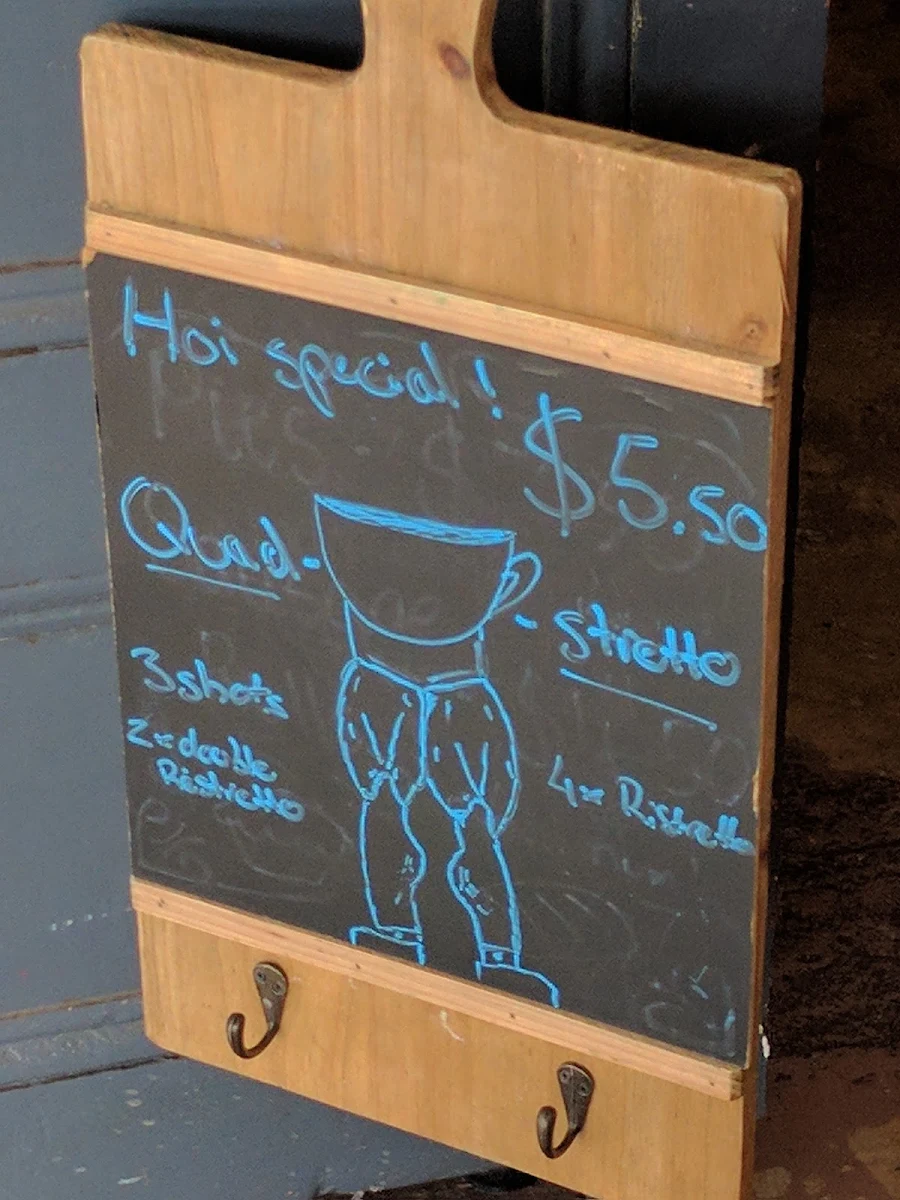 Hoi special!
$5.50
Quad-
-stretto
3 shots
2x double
Ristretto
4x Ristretto